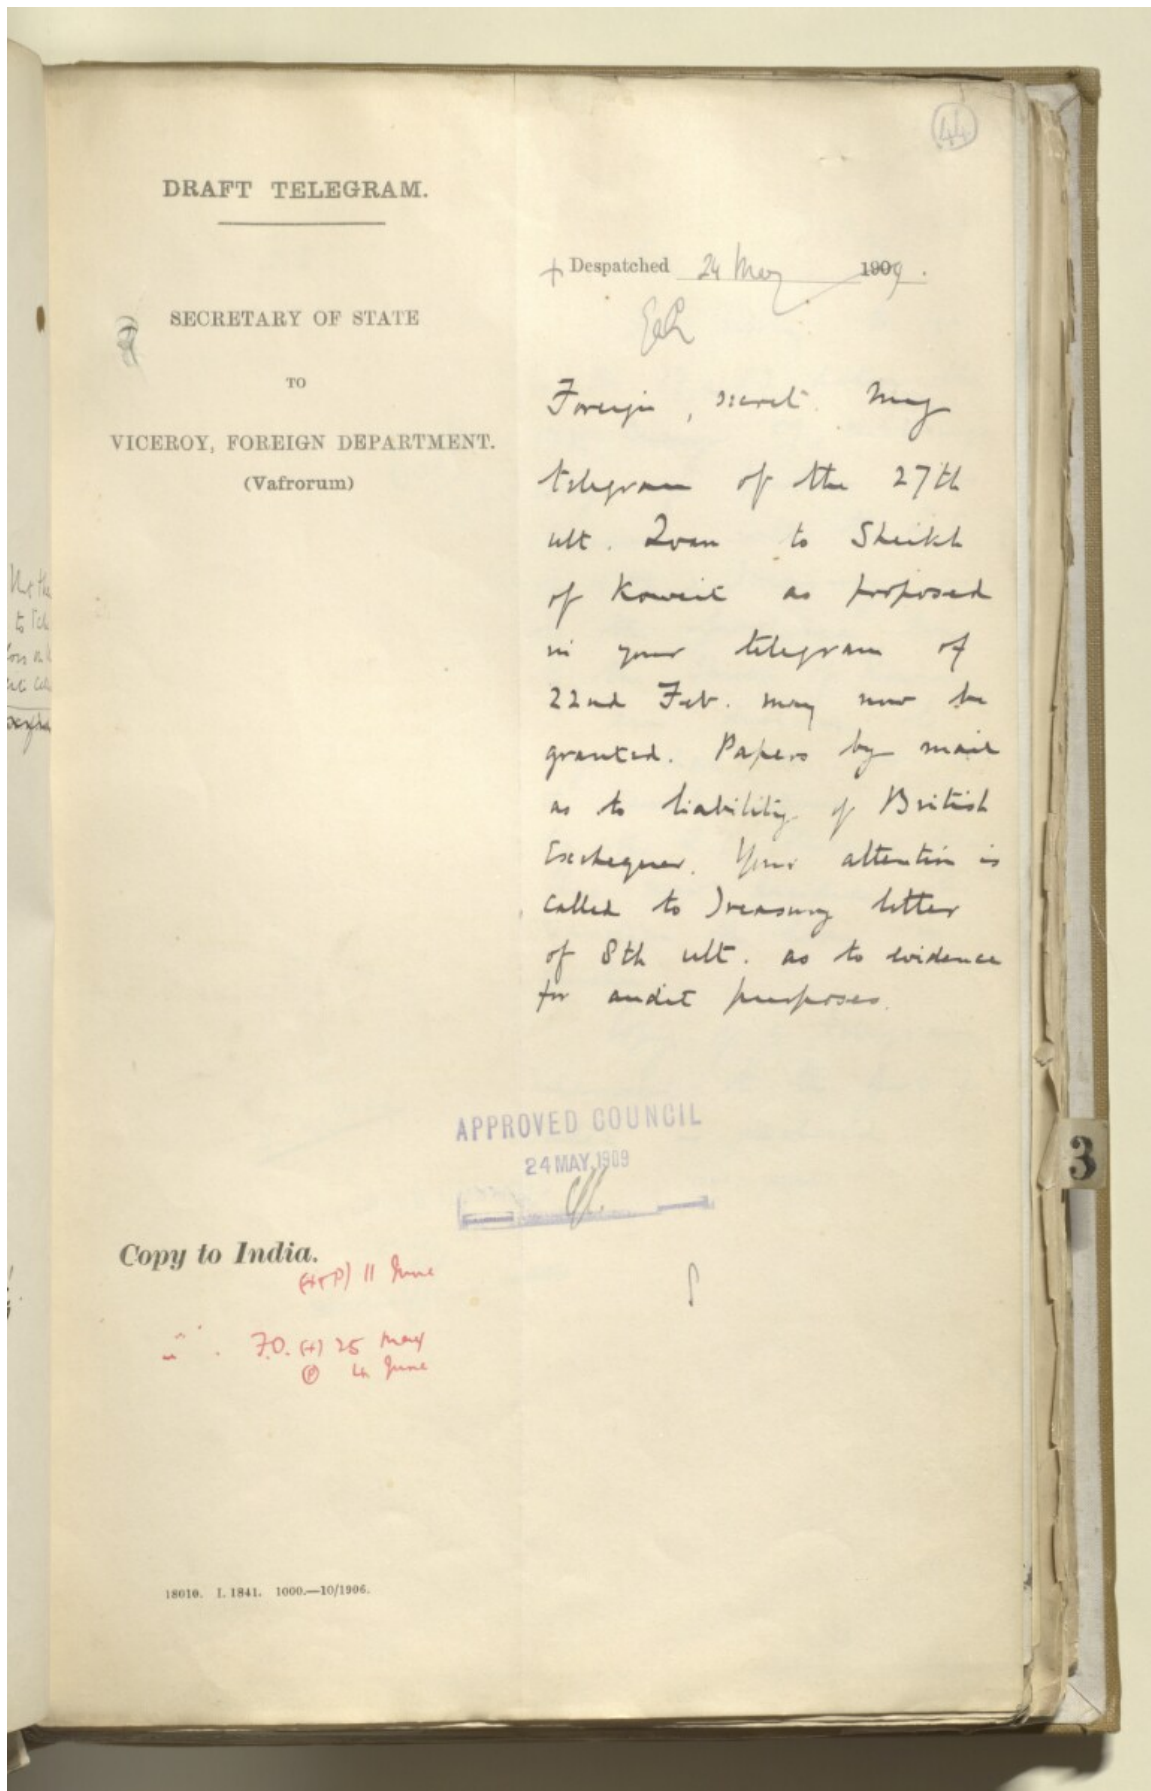 44
DRAFT TELEGRAM.
+ Despatched 24 May 1909.
SECRETARY OF STATE
TO
VICEROY, FOREIGN DEPARTMENT.
(Vafrorum)
Foreign, secret. My
telegram of the 27th
ult. Loan to Sheikh
of Koweit as proposed
in your telegram of
22nd Feb. may now be
granted. Papers by mail
as to liability of British
Exchequer. Your attention is
called to Treasury letter
of 8th ult. as to evidence
for audit purposes.
APPROVED COUNCIL
24 MAY 1909
3
Copy to India.
11 June
F.O. (+) 25 May
(P) 4 June
18010. I. 1841. 1000.—10/1906.